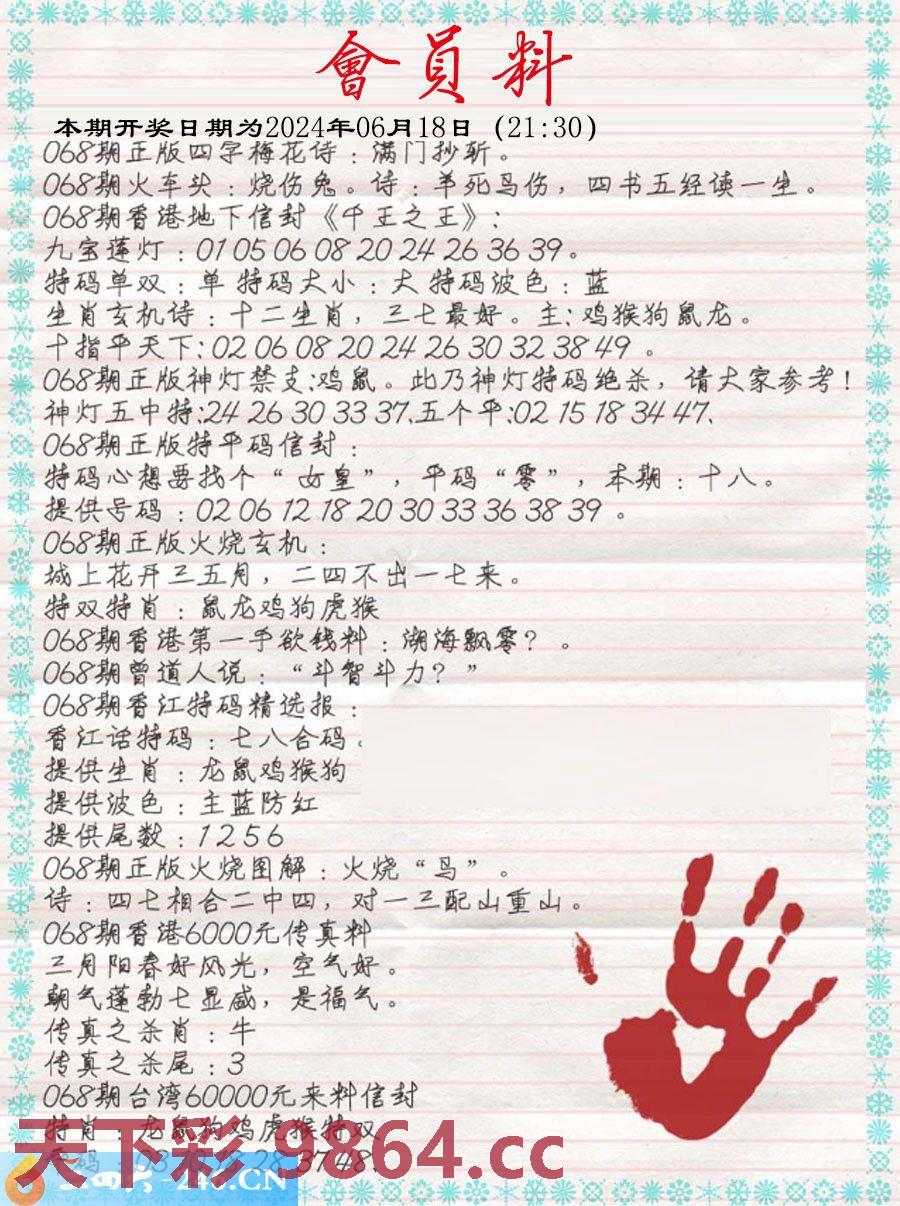 會員料
本期开奖日期为2024年06月18日 (21:30)
068期正版四字梅花诗：满门抄斩。
068期火车头：烧伤兔。诗：羊死鸟伤，四书五经读一生。
068期香港地下信封《千王之王》：
九宝莲灯：01 05 06 08 20 24 26 36 39。
特码单双：单 特码大小：大 特码波色：蓝
生肖玄机诗：十二生肖，三七最好。主：鸡猴狗鼠龙。
十指平天下:02 06 08 20 24 26 30 32 38 49 。
068期正版神灯禁支:鸡鼠。此乃神灯特码绝杀，请大家参考！
神灯五中特:24 26 30 33 37.五个平:02 15 18 34 47.
068期正版特平码信封：
特码心想要找个“女皇”，平码“零”，本期：十八。
提供号码：02 06 12 18 20 30 33 36 38 39 。
068期正版火烧玄机：
城上花开三五月，二四不出一七来。
特双特肖：鼠龙鸡狗虎猴
068期香港第一手欲钱料：湖海飘零？。
068期曾道人说：“斗智斗力？”
068期香江特码精选报：
香江话特码：七八合码。
提供生肖：龙鼠鸡猴狗
提供波色：主蓝防红
提供尾数：1 2 5 6
068期正版火烧图解：火烧“鸟”。
诗：四七相合二中四，对一三配山重山。
068期香港6000元传真料
三月阳春好风光，空气好。
朝气蓬勃七显威，是福气。
传真之杀肖：牛
传真之杀尾：3
068期台湾60000元来料信封
特肖：龙鼠狗鸡虎猴特双
天下彩.9864.cc
246.CN